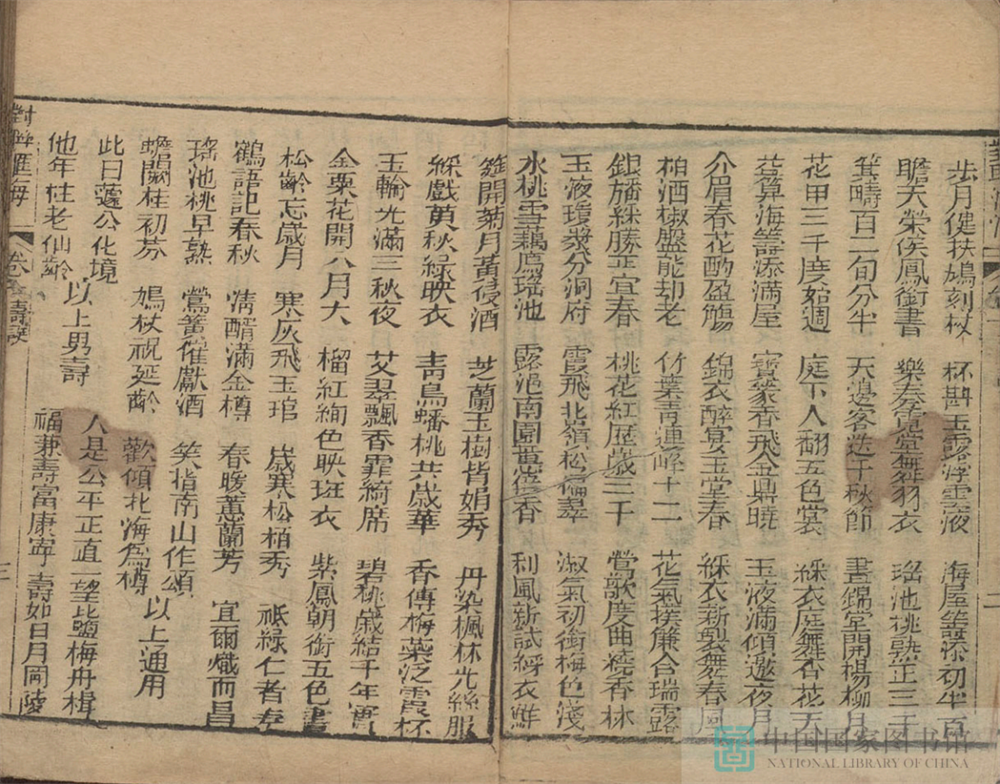 步月健扶鳩刻杖 杯斟玉露浮雲液 海屋籌添初半百
瞻天榮俟鳳銜書 樂奏霓裳舞羽衣 瑤池桃熟正三千
箕疇百二旬分半 天邊客迭千秋節 晝錦堂開楊柳月
花甲三千度始週 庭下人翻五色裳 綵衣庭舞杏花天
蓂算海籌添滿屋 寶篆香飛金鼎曉 玉液滿傾邀夜月
介眉春花酌盈觴 錦衣醉宴玉堂春 綵衣新製舞春風
柏酒椒盤能却老 竹葉青連峰十二 花氣撲簾含瑞露
銀旛綵勝正宜春 桃花紅歷歲三千 鶯歌度曲繞香林
玉液瓊漿分洞府 霞飛北嶺松 淑氣初銜梅色淺
水桃雪藕薦瑤池 露浥南園 香 利風新試綵衣鮮
筵開菊月黃侵酒 芝蘭玉樹皆娟秀 丹染楓林光綵服
綵戲萸秋綠映衣 青鳥蟠桃共歲華 香傳梅蘂泛霞杯
玉輪光滿三秋夜 艾翠飄香霏綺席 碧桃歲結千年實
金粟花開八月天 榴紅絢色映斑衣 紫鳳朝銜五色書
松齡忘歲月 寒灰飛玉琯 歲寒松栢秀 祇綠仁者存
鶴語記春秋 清醑滿金樽 春暖蕙蘭芳 宜爾熾而昌
瑤池桃早熟 鶯簧催獻酒 笑指南山作頌
蟾闕桂初芬 鳩杖祝延齡 歡傾北海為樽 以上通用
此日蘧公化境 人是公平正直一望皆鹽梅舟楫
他年桂老仙齡 以上男壽 福兼壽富康寧 壽如日月岡陵
對聯匯海 卷 壽誕 三
二